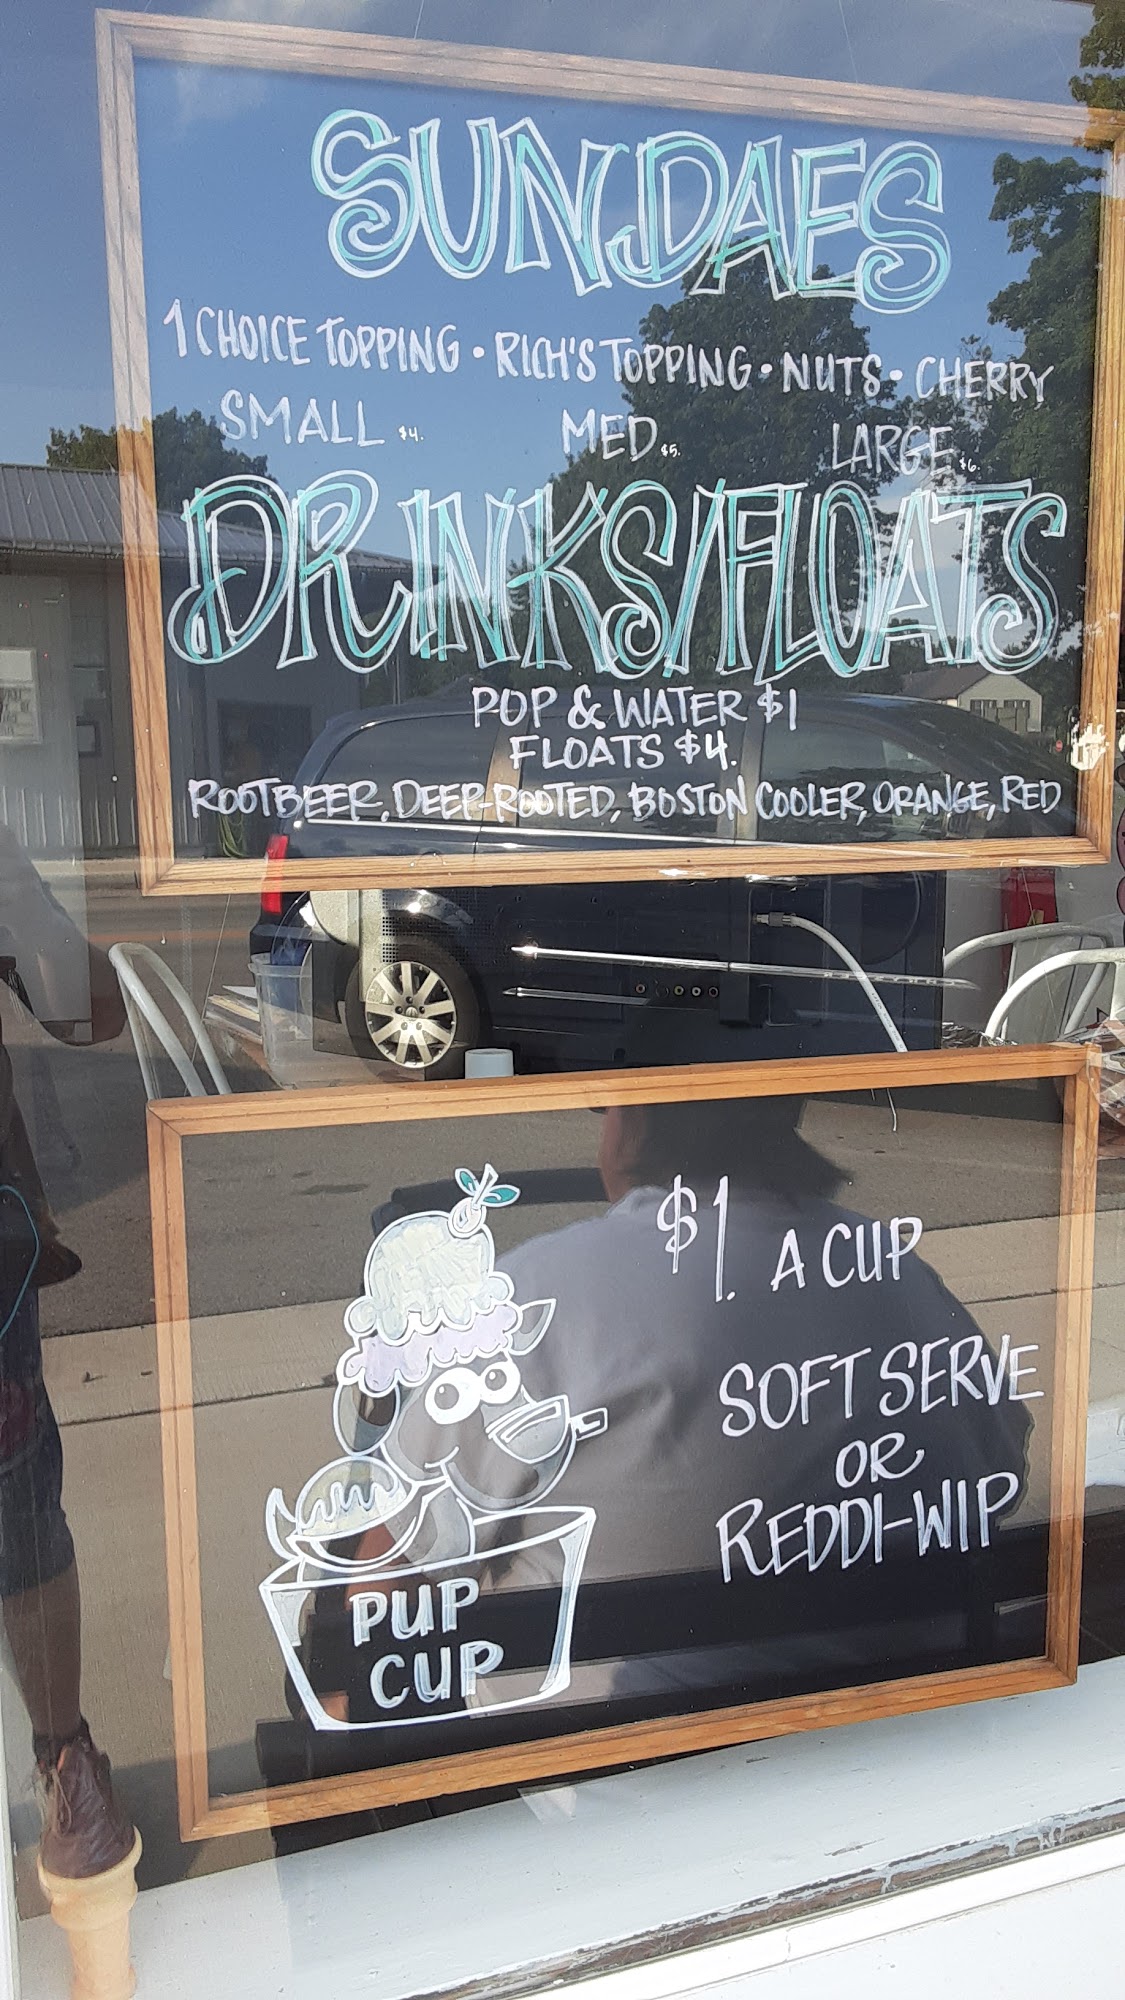 SUNDAES
1 CHOICE TOPPING • RICH'S TOPPING • NUTS • CHERRY
SMALL $4. MED $5. LARGE $6.
DRINKS/FLOATS
POP & WATER $1
FLOATS $4.
ROOTBEER, DEEP-ROOTED, BOSTON COOLER, ORANGE, RED
$1. A CUP
SOFT SERVE
OR
REDDI-WIP
PUP
CUP